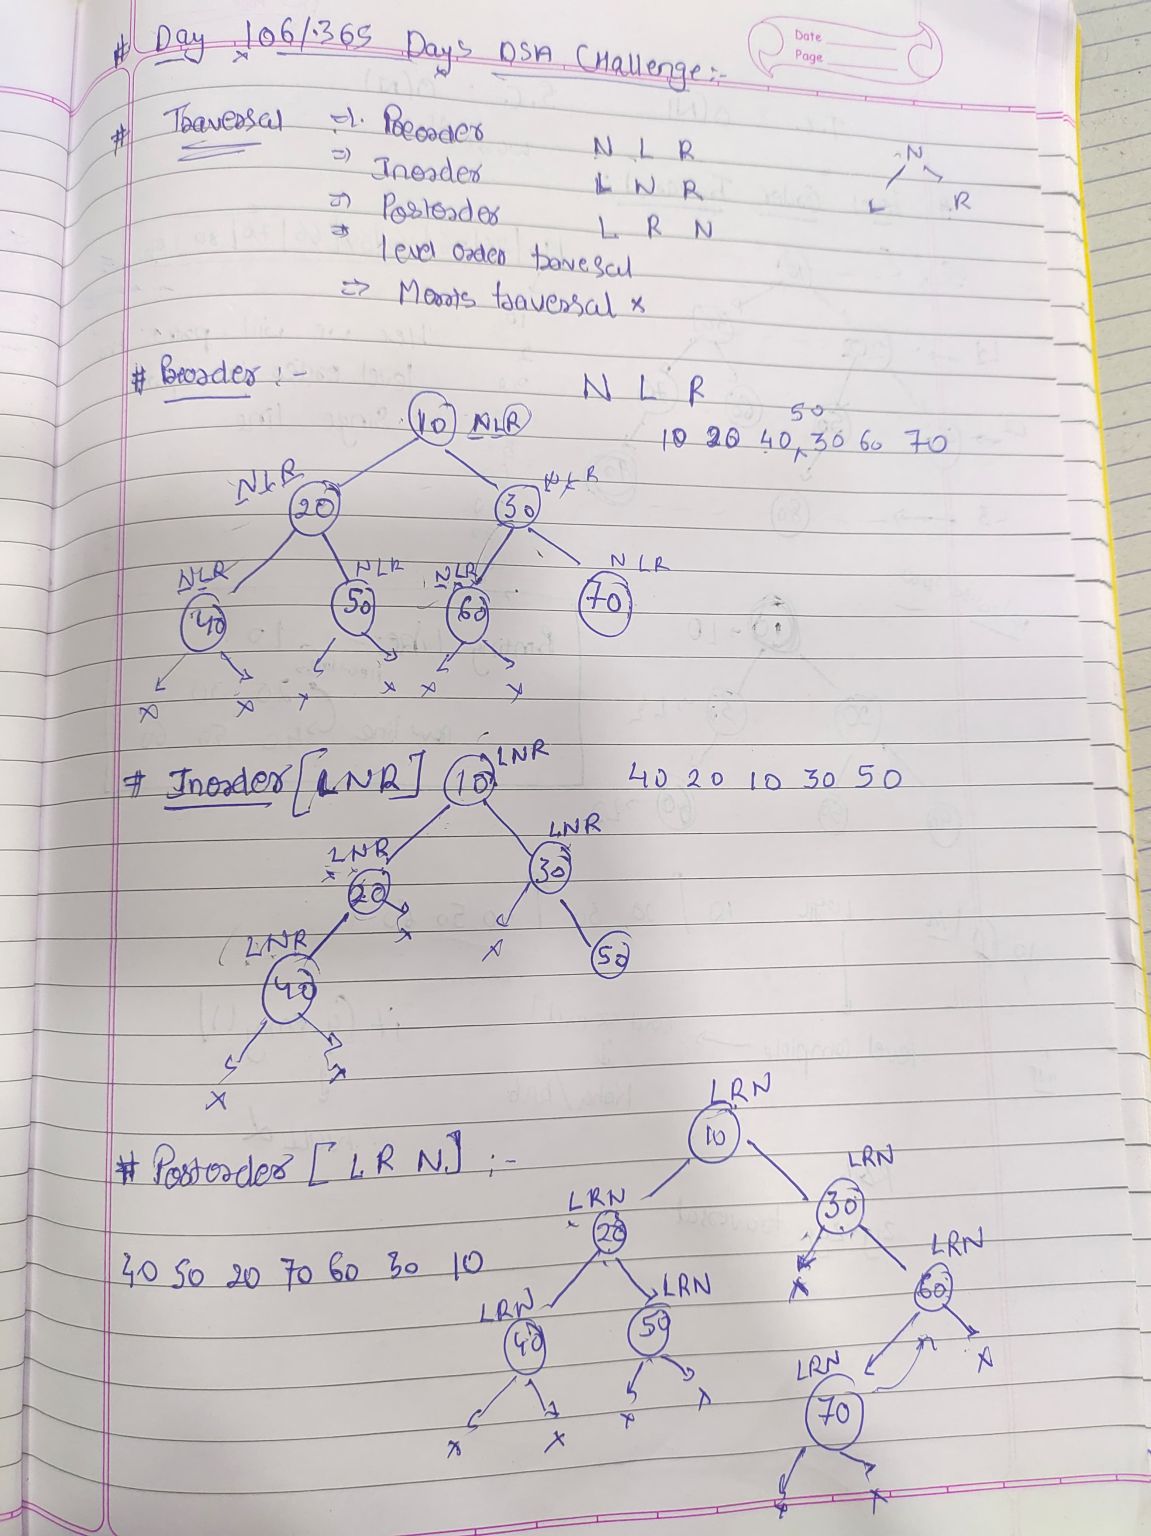 # Day 106/365 Days DSA Challenge:-
Date
Page
# Traversal => Preorder N L R
=> Inorder L N R
=> Postorder L R N
=> level order travesal
=> Morris traversal x
N
L R
# Preorder :- N L R
50
10 20 40 ^ 30 60 70
10 NLR
NLR NLR
20 30
NLR NLR NLR NLR
40 50 60 70
x x x x x x
# Inorder [LNR] 10 LNR 40 20 10 30 50
LNR LNR
20 30
x x
LNR 50
40
x x
LRN
10
# Postorder [LRN] :-
LRN LRN
20 30
40 50 20 70 60 30 10
x LRN
LRN LRN 60
40 50 x
x x x x
LRN
70
x x